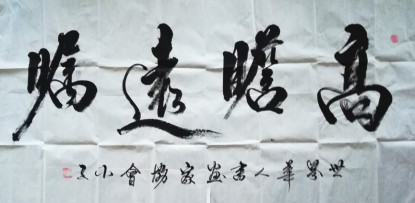 高瞻遠矚
世界華人書画家協會小玉